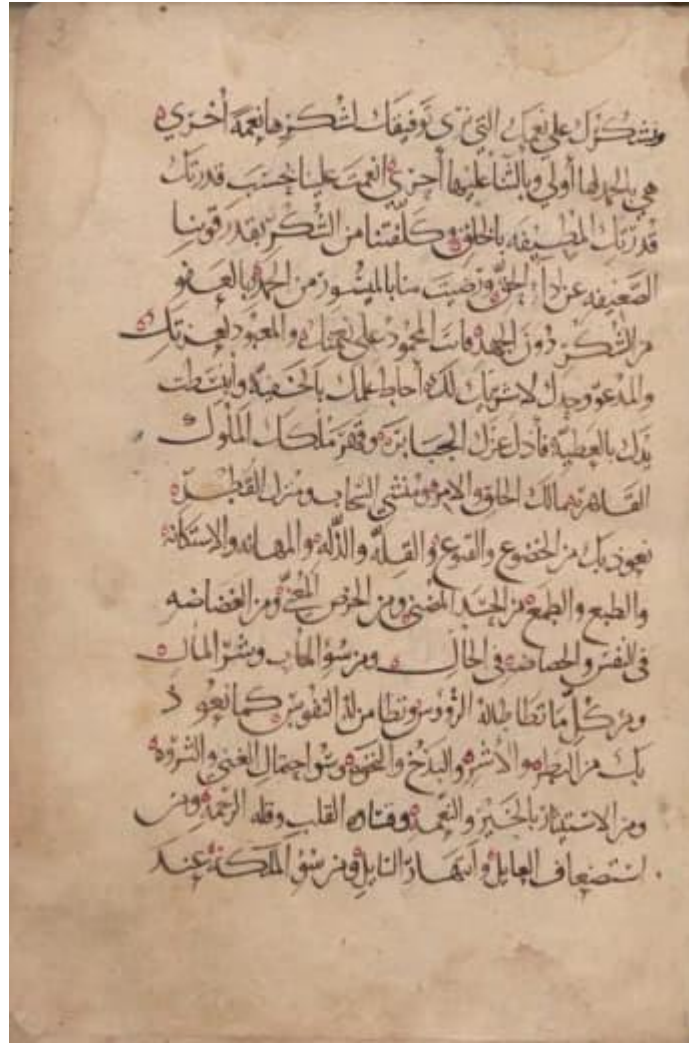 ونشكرك على نعمك التي ترى توفيقك لشكرها نعمة أخرى
هي بالحمد لها أولى وبالثنا عليها أحرى أنعمت علينا بحسب قدرتك
قدرتك المطيفه بالخلق وكلفتنا من الشكر بقدر قوتنا
الضعيفه عن اداء الحق ورضيت منا بالميسور من الحمد بالعفو
من الشكر دون الجهد فانت المحمود على نعمتك والمعبود لعزتك
والمدعو وحدك لا شريك لك أحاط علمك بالخفية وانبسطت
يدك بالعطية فأذل عزك الجبابرة وقهر ملكك الملوك
القاهرة مالك الخلق والامر ومنشي السحاب ومنزل القطر
نعوذ بك من الخضوع والقنوع والقلة والذلة والمهانه والاستكانة
والطبع والطمع من الحسد المضني ومن الحرص المعني ومن الغضاضه
في النفس والخصاصه في الحال ومن سوء المآب وشر المال
ومن كل ما تطاطا له الرؤوس وتطامن له النفوس كما نعوذ
بك من البطر والأشر والبذخ والنخوة وسوء احتمال الغنى والثروة
ومن الاستيثار بالخير والنعمة وقساوة القلب وقله الرحمة ومن
استضعاف العايل وانتهار السايل ومن سوء الملكة عند